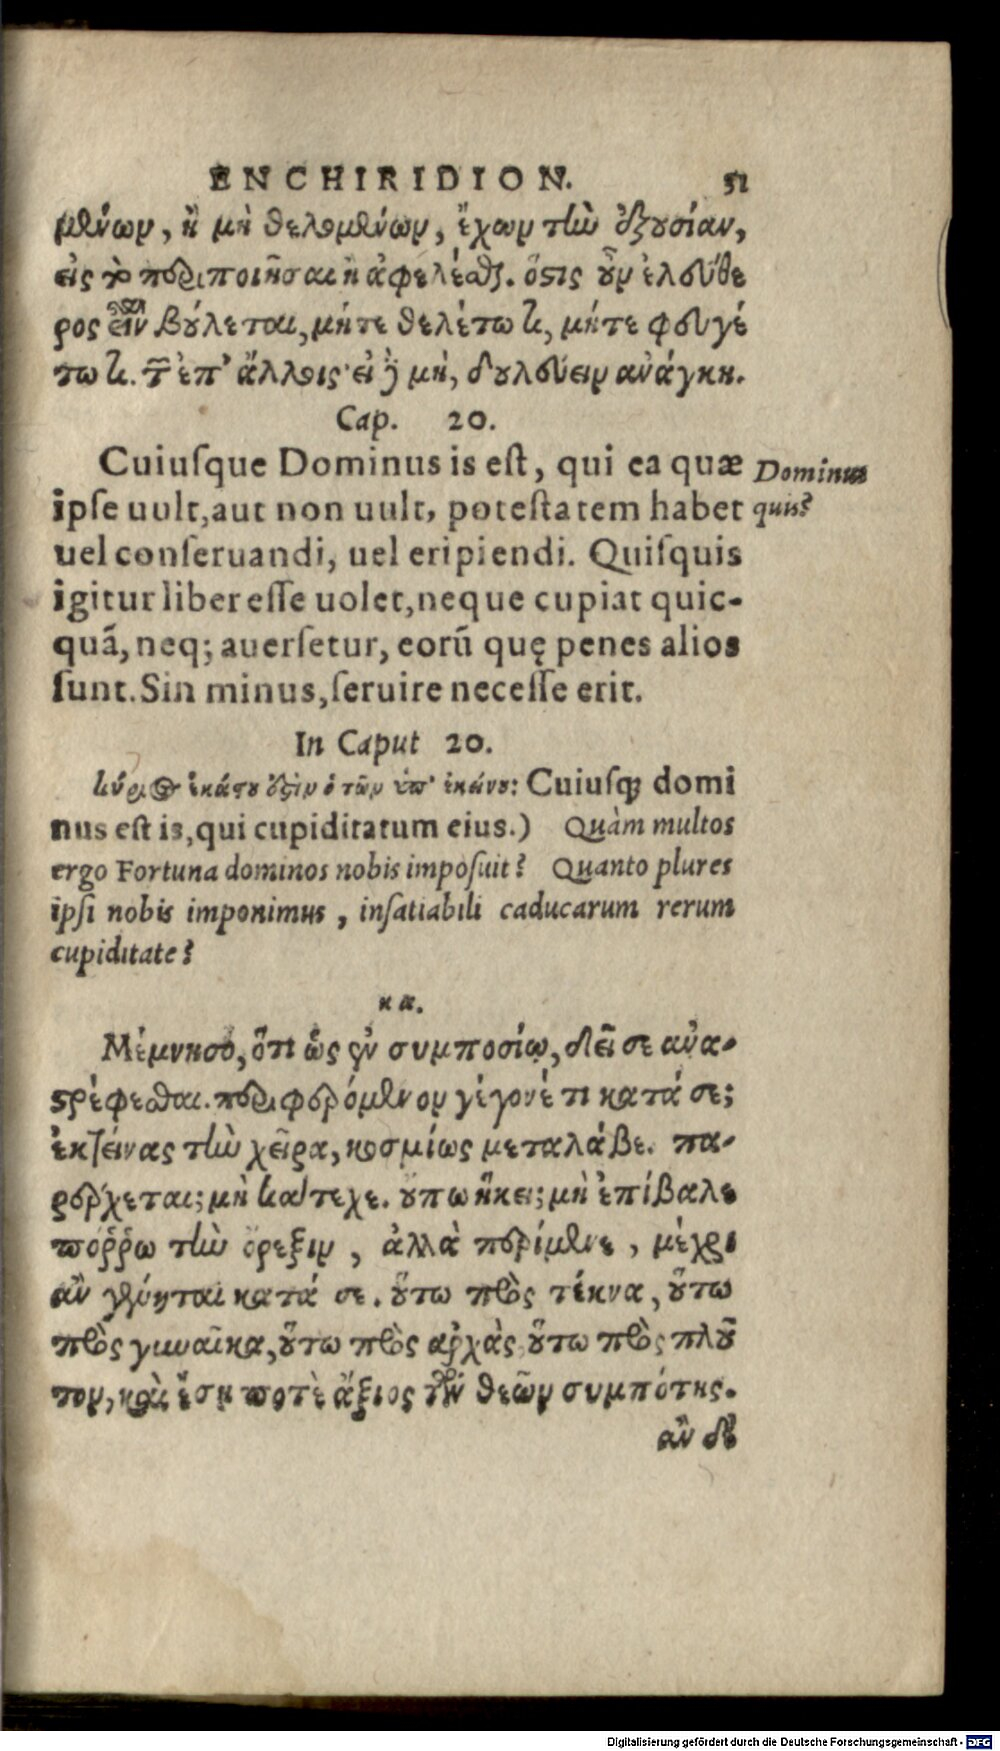 ENCHIRIDION. 51
μένων, ἢ μὴ θελομένων, ἔχων τὴν ἐξουσίαν,
εἰς τὸ περιποιῆσαι ἢ ἀφελέσθαι. ὅστις οὖν ἐλεύθε
ρος εἶναι βούλεται, μήτε θελέτω τι, μήτε φευγέ
τω τι τῶν ἐπ' ἄλλοις· εἰ δὲ μὴ, δουλεύειν ἀνάγκη.
Cap. 20.
Cuiuſque Dominus is eſt, qui ea quæ
ipſe uult, aut non uult, poteſtatem habet
uel conſeruandi, uel eripiendi. Quiſquis
igitur liber eſſe uolet, neque cupiat quic-
quā, neq; auerſetur, eorū quę penes alios
ſunt. Sin minus, ſeruire neceſſe erit.
Dominus
quis?
In Caput 20.
κύριος ἑκάστου ἐστὶν ὁ τῶν ὑπ' ἐκείνου: Cuiuſq; domi
nus eſt is, qui cupiditatum eius.) Quàm multos
ergo Fortuna dominos nobis impoſuit? Quanto plures
ipſi nobis imponimus, inſatiabili caducarum rerum
cupiditate?
κα.
Μέμνησο, ὅτι ὡς ἐν συμποσίῳ, δεῖ σε ἀνα-
στρέφεσθαι. περιφερόμενον γέγονέ τι κατά σε;
ἐκτείνας τὴν χεῖρα, κοσμίως μετάλαβε. πα-
ρέρχεται; μὴ κάτεχε. οὔπω ἥκει; μὴ ἐπίβαλε
πόῤῥω τὴν ὄρεξιν, ἀλλὰ περίμενε, μέχρι
ἂν γένηται κατά σε. οὕτω πρὸς τέκνα, οὕτω
πρὸς γυναῖκα, οὕτω πρὸς ἀρχὰς, οὕτω πρὸς πλοῦ
τον, καὶ ἔσῃ ποτὲ ἄξιος τῶν θεῶν συμπότης.
ἂν δὲ
Digitalisierung gefördert durch die Deutsche Forschungsgemeinschaft - DFG